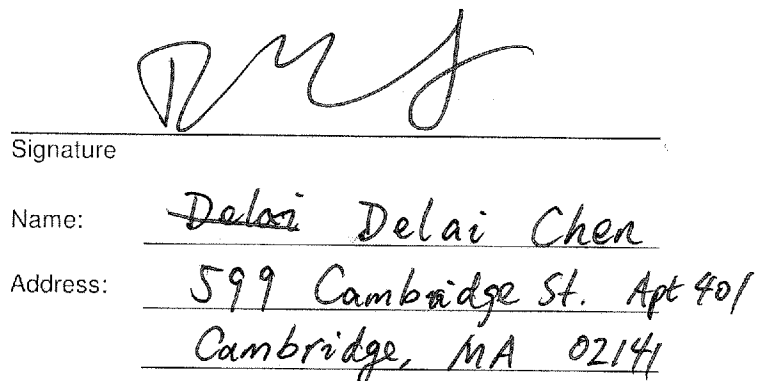 Signature
Name: Delai Delai Chen
Address: 599 Cambridge St. Apt 401
Cambridge, MA 02141